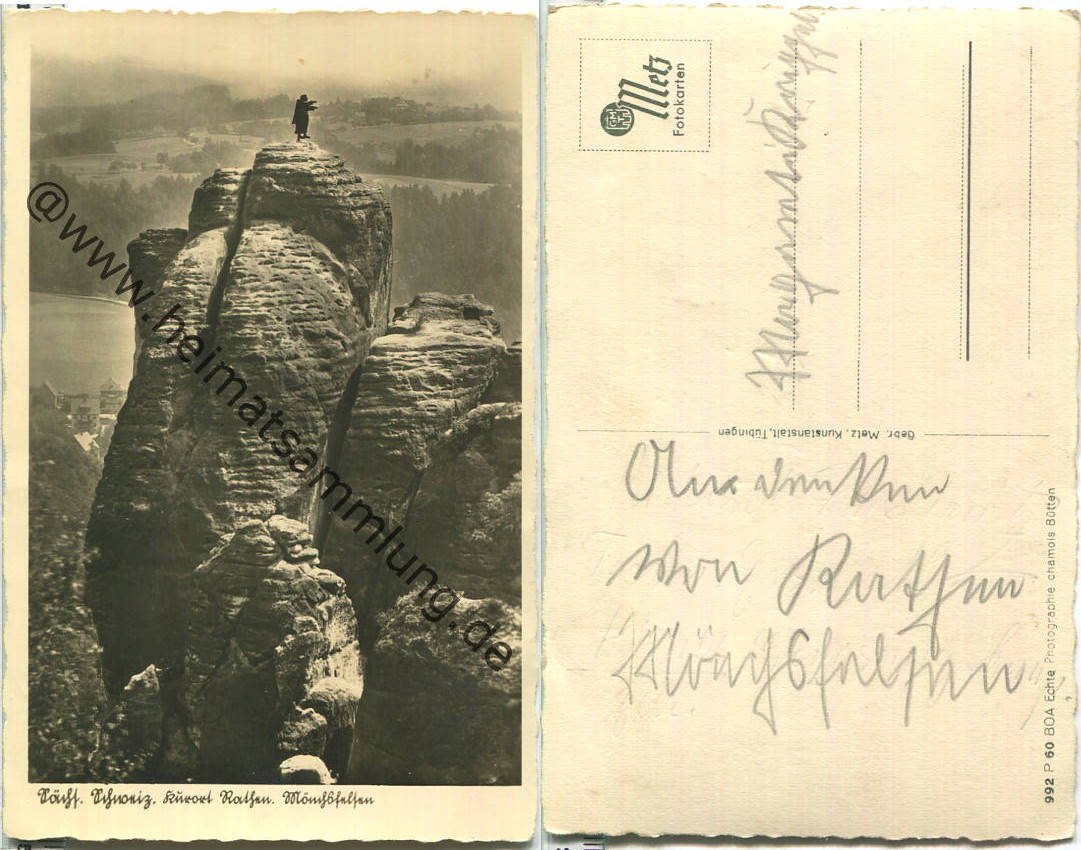 @www.heimatsammlung.de
Sächs. Schweiz. Kurort Rathen. Mönchsfelsen
GM
T
Metz
Fotokarten
Gebr. Metz, Kunstanstalt, Tübingen
Andenken
von Rathen
Mönchsfelsen
992 P 60 BOA Echte Photographie chamois Bütten